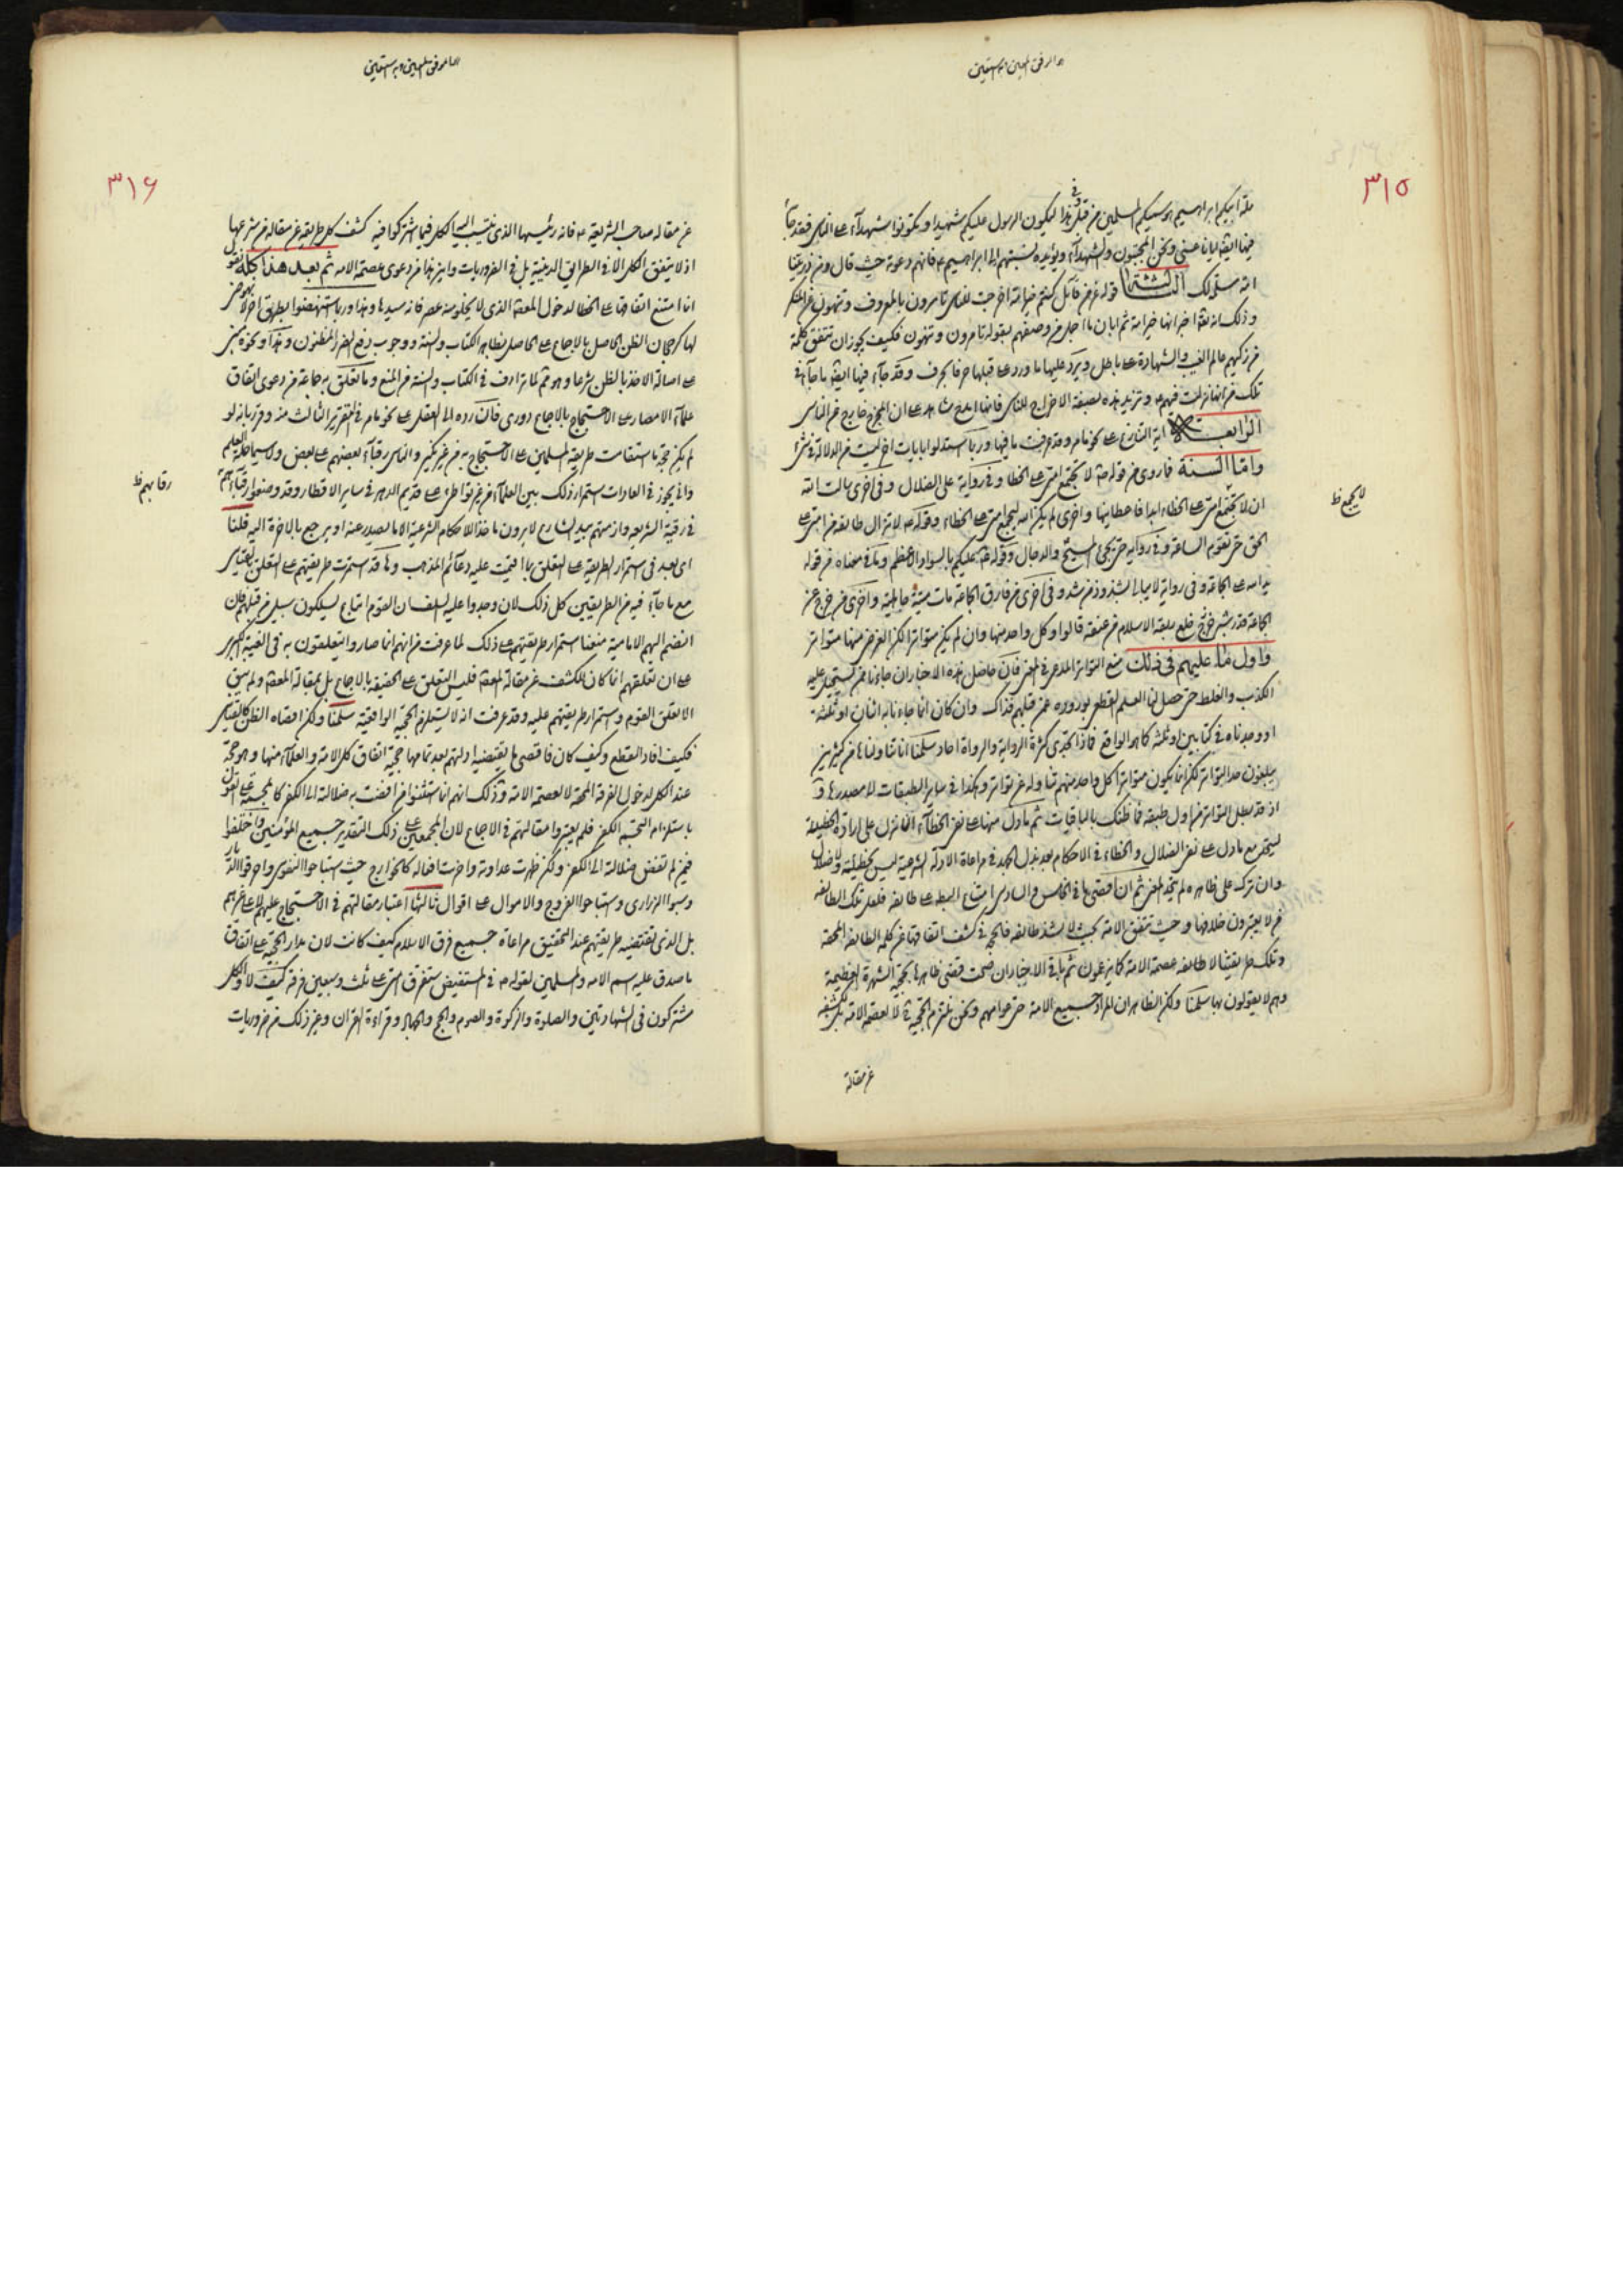 ٣١٥
ملة ابيكم ابراهيم هو سميكم المسلمين من قبل وفي هذا ليكون الرسول عليكم شهيدا وتكونوا شهدآء على الناس فقد جآء
فيها ايضا ايانا عنى ونحن المجتبون والشهدآء ويؤيده نسبتهم الى ابراهيم ع فانهم دعوته حيث قال ومن ذريتنا
امة مسلمة لك الثالثة قوله عز من قائل كنتم خير امة اخرجت للناس تامرون بالمعروف وتنهون عن المنكر
وذلك انه تعالى اخبر انها خير امة ثم ابان ما اجله من وصفهم بقوله تامرون وتنهون فكيف يجوز ان تتفق كلمة
من زكيهم عالم الغيب والشهادة على باطل ويرد عليها ما ورد على قبلها حرفا بحرف وقد جآء فيها ايضا ما جآء في
تلك من انها نزلت فيهم ع وتزيد هذه بصيغة الاخراج للناس فانها ابلغ شاهد على ان المخرج خارج عن الناس
الرابعة اية التنازع على نحو ما مر وقد عرفت ما فيها وربما استدلوا بايات اخر ليست من الدلالة في شئ
واما السنة فما روى من قوله ص لا تجتمع امتي على الخطا وفي رواية على الضلال وفي اخرى سالت الله
ان لا تجتمع امتي على الخطاء ابدا فاعطانيها واخرى لم يكن الله ليجمع امتي على الخطاء وقوله ص لا تزال طائفة من امتي على
الحق حتى تقوم الساعة وفي رواية حتى يجئ المسيح والدجال وقوله ص عليكم بالسواد الاعظم وما في معناه من قوله
يد الله على الجماعة وفي رواية لا يبالى بشذوذ من شذ وفي اخرى من فارق الجماعة مات ميتة جاهلية واخرى من خرج عن
الجماعة قدر شبر فقد خلع ربقة الاسلام من عنقه قالوا وكل واحد منها وان لم يكن متواترا لكن الغرض منها متواتر
واول ما عليهم في ذلك منع التواتر المدعى في المعنى فان حاصل هذه الاخبار ان جاءنا عمن يستحيل عليه
الكذب والغلط حتى حصل لنا العلم القطعي بوروده عمن قبلهم فذاك وان كان انما جاءنا به اثنان او ثلثة
او وجدناه في كتابين او ثلثة كما هو الواقع فماذا تجدى كثرة الرواية والرواة احاد سلمنا انا تناولناها من كثيرين
يبلغون حد التواتر لكن انما يكون متواترا اذا كان كل واحد منهم تناوله عن تواتر وهكذا في ساير الطبقات الى مصدرها
اذ قد يبطل التواتر من اول طبقة فما ظنك بالباقيات ثم ما دل منها على نفي الخطآء انما نزل على ارادة الخطيئة
ليتحد مع ما دل على نفي الضلال والخطاء في الاحكام بعد بذل الجهد في مراعاة الادلة الشرعية ليس بخطيئة ولا ضلال
وان ترك على ظاهره لم يتحد المعنى ثم ان اقصى ما في الخامس والسادس امتناع الخطا على طائفة فلعل تلك الطائفة
ممن لا يعتبرون خلافها وحيث تتفق الامة بحيث لا يشذ طائفة فالحجة في كشف اتفاقها عن كلمة الطائفة المحقة
وتلك طريقتنا لا طائفة عصمة الامة كما يزعمون ثم باقي الاخبار ان صحت قضى ظاهرها بحجية الشهرة العظيمة
وهم لا يقولون بها سلمنا ولكن الظاهر ان المراد جميع الامة حتى عوامهم ونحن نلتزم الحجية ح لا لعصمة الامة بل لكشفه
عن مقالة
٣١٦
عن مقالة صاحب الشريعة ع فانه رئيسها الذي ينتسب اليه الكل فيما اشتركوا فيه كشف كل طريقة عن مقالة من شرعها
اذ لا يتفق الكل الا في الطرايق الدينية بل في الضروريات واين هذا من دعوى عصمة الامة ثم بعد هذا كله نقول
انما امتنع اتفاقها على الخطا لدخول المعصوم الذي لا يخلو منه عصر فانه سيدها وهذا وربما استنهضوا بطريق اخر لا نهوض
لها كرجحان الظن الحاصل بالاجماع على الحاصل بظاهر الكتاب والسنة ووجوب دفع الضرر المظنون وهذا ونحوه مبنى
على اصالة الاخذ بالظن شرعا وهو ثم لما ترادف في الكتاب والسنة من المنع وما تعلق به جماعة من دعوى اتفاق
علمآء الامصار على الاحتجاج بالاجماع دورى فان رده الى العقل على نحو ما مر في التقرير الثالث منه وقرر بانه لو
لم يكن حجة ما استقامت طريقة المسلمين على الاحتجاج به من غير نكير والناس رقبآء بعضهم على بعض ولا سيما حملة العلم
وانى يجوز في العادات استمرار ذلك بين العلمآء من غير تواطئ على قديم الدهر في ساير الاقطار وقد وضعوا رقابهم
في رقبة الشريعة وازمتهم بيد الشارع لا يرون ماخذا للاحكام الشرعية الا ما يصدر عنه او يرجع بالاخرة اليه قلنا
اى بعد في استمرار الطريقة على التعلق بما اقيمت عليه دعآئم المذهب وها قد استمرت طريقتهم على التعلق بالقياس
مع ما جآء فيه من الطريقين كل ذلك لان وجدوا عليه السلف ان القوم اتباع يسلكون سبيل من قبلهم فان
انضم اليهم الامامية منعنا استمرار طريقتهم على ذلك لما عرفت من انهم انما صاروا يتعلقون به في الغيبة الكبرى
على ان تعلقهم انما كان للكشف عن مقالة المعصوم فليس التعلق على الحقيقة بالاجماع بل بمقالة المعصوم ولم يبق
الا تعلق القوم واستمرار طريقتهم عليه وقد عرفت انه لا يستلزم الحجية الواقعية سلمنا ولكن اقصاه الظن كالقياس
فكيف افاد القطع وكيف كان فاقصى ما يقتضيه ادلتهم بعد تمامها حجية اتفاق كل الامة والعلمآء منها وهو حجة
عند الكل لدخول الفرقة المحقة لا لعصمة الامة وذلك انهم انما استثنوا من افضت به ضلالته الى الكفر كالمجسمة على القول
باستلزام التجسيم الكفر فلم يعتبروا مقالتهم في الاجماع لان المجمعين على ذلك التقدير جميع المؤمنين واختلفوا
فيمن لم تفض ضلالته الى الكفر ولكن ظهرت عداوته واضرت افعاله كالخوارج حيث استباحوا النفوس واحرقوا الديار
وسبوا الذرارى واستباحوا الفروج والاموال على اقوال ثالثها اعتبار مقالتهم في الاحتجاج عليهم لا على غيرهم
بل الذي تقتضيه طريقتهم عند التحقيق مراعاة جميع فرق الاسلام كيف كانت لان مدار الحجية على اتفاق
ما صدق عليه اسم الامة والمسلمين لقوله ص في المستفيض ستفترق امتي على ثلث وسبعين فرقة كيف لا والكل
مشتركون في الشهادتين والصلوة والزكوة والصوم والحج والجهاد وقراءة القران وغير ذلك من ضروريات
رقابهم ظ